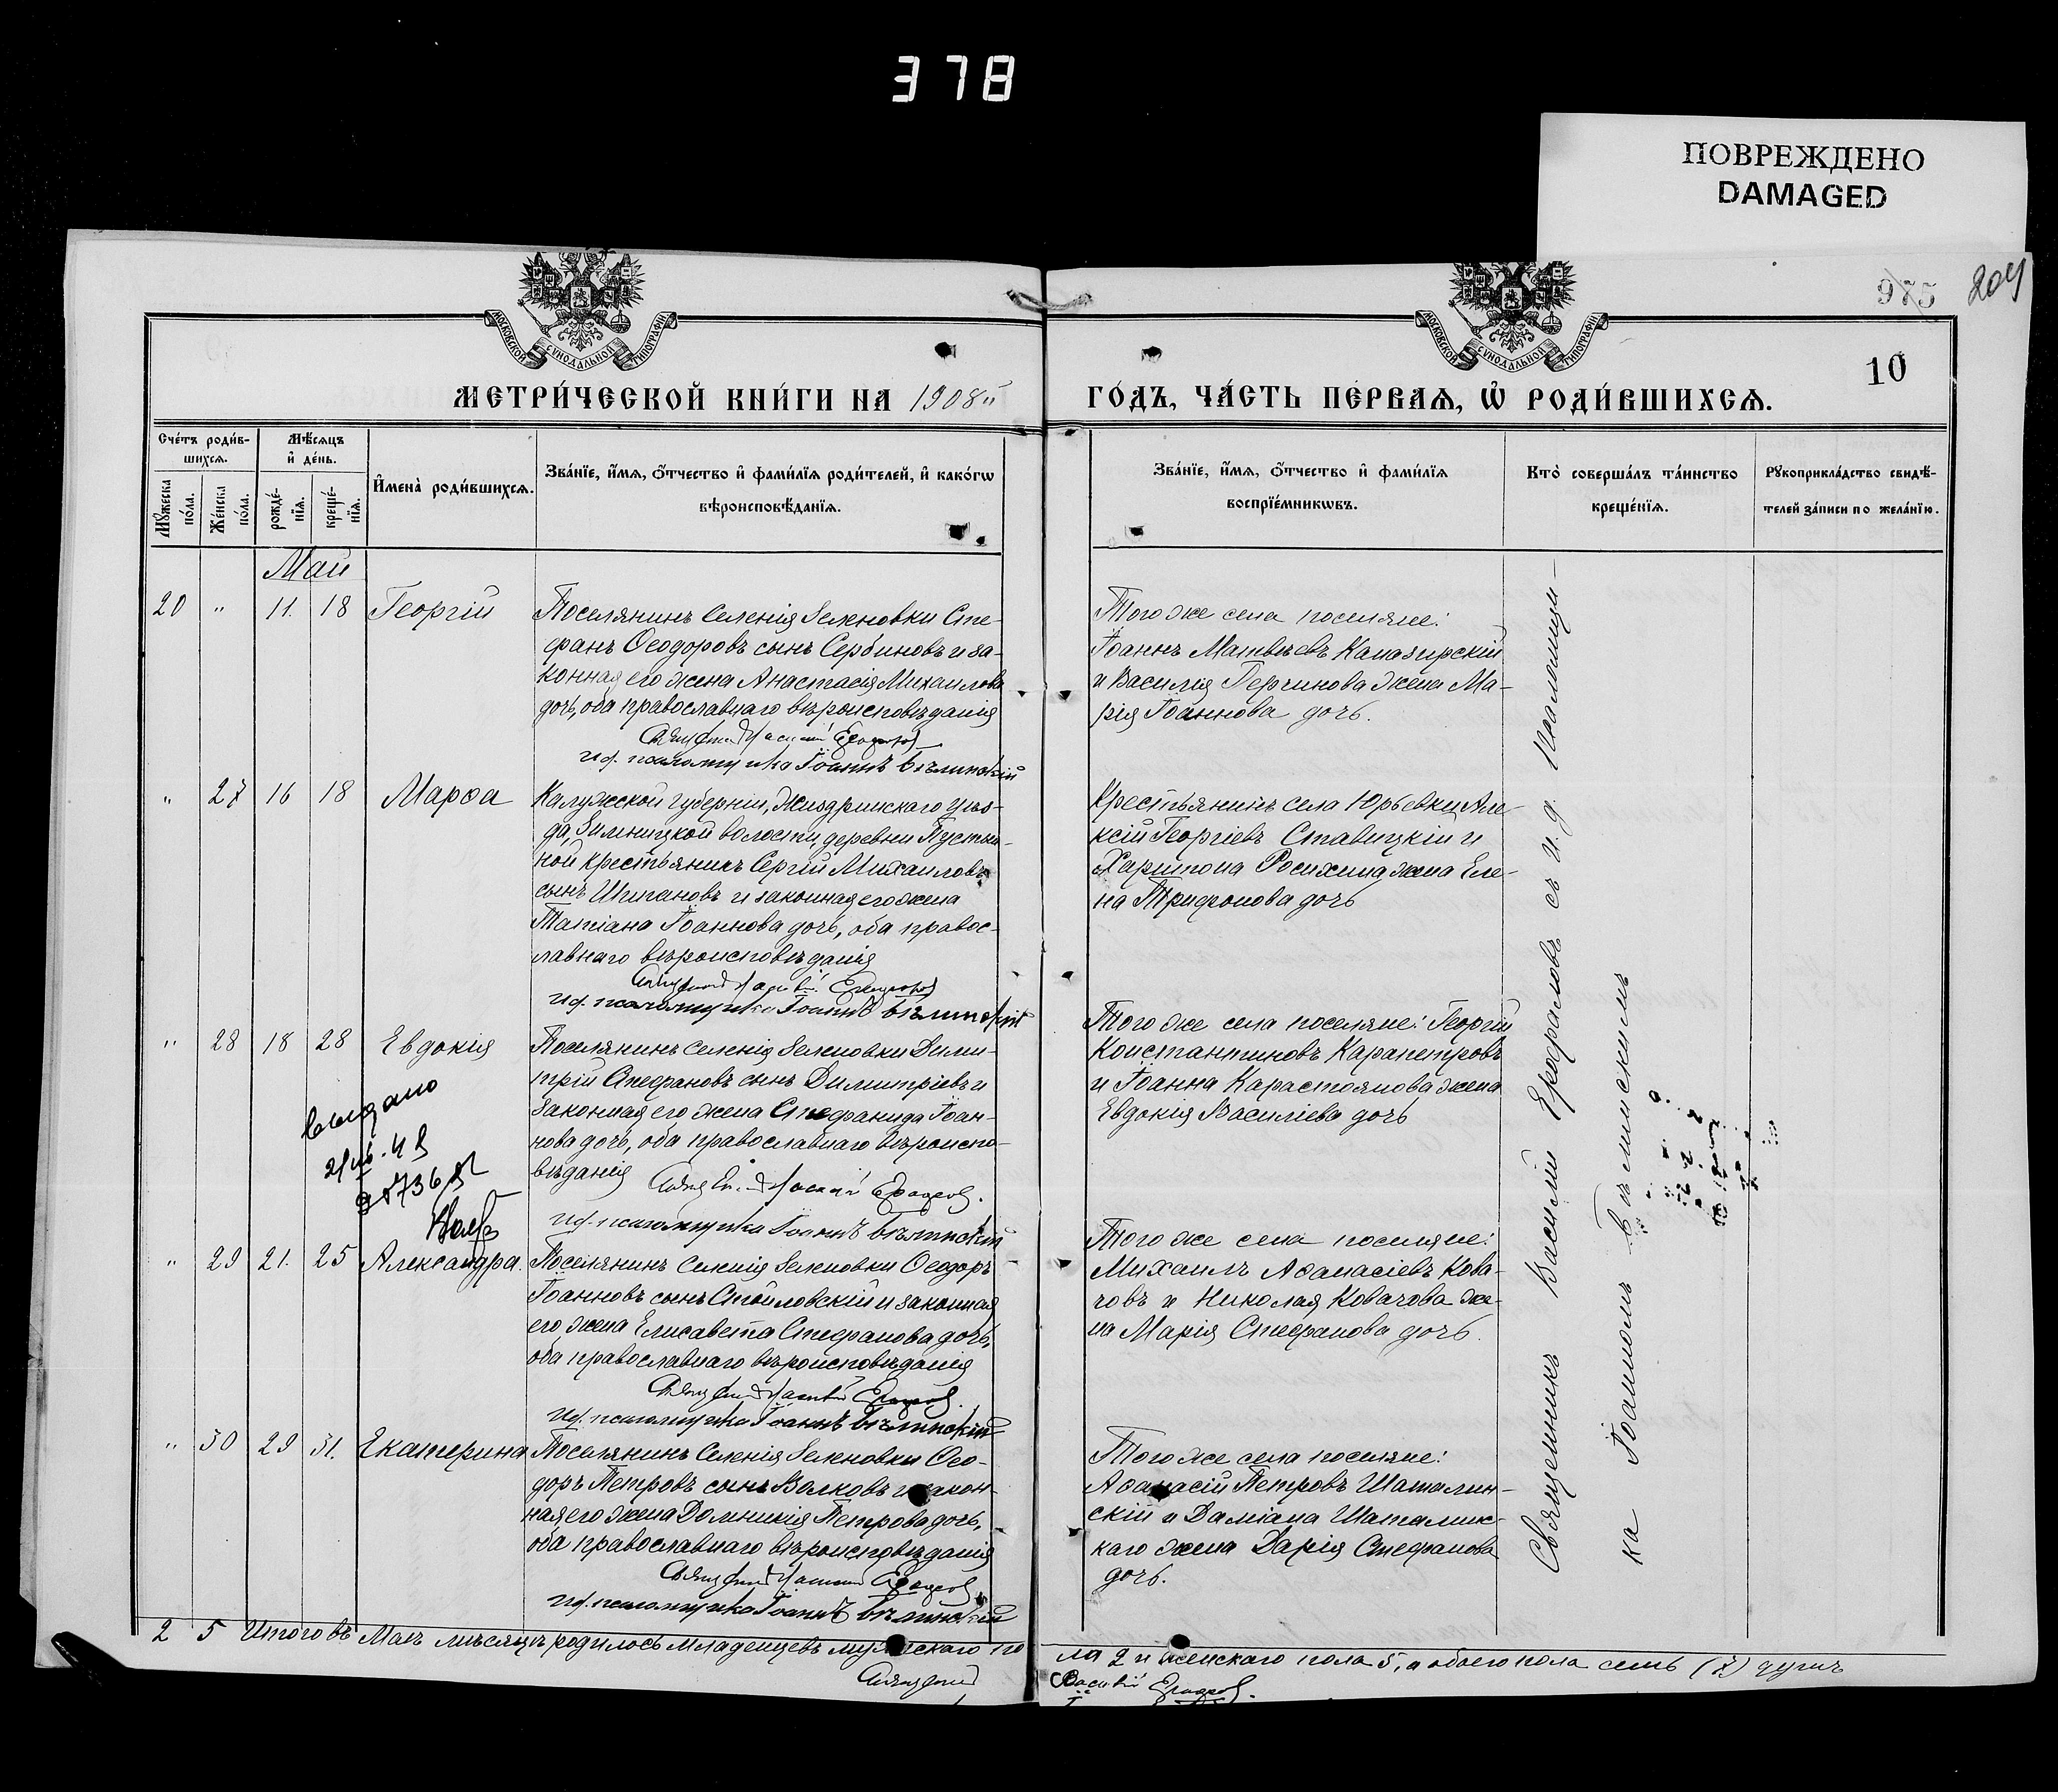 378
ПОВРЕЖДЕНО
DAMAGED
975 204
МОСКОВСКОЙ СУНОДАЛЬНОЙ ТИПОГРАФІИ
МОСКОВСКОЙ СУНОДАЛЬНОЙ ТИПОГРАФІИ
10
МЕТРИ́ЧЕСКОЙ КНИ́ГИ НА 1908й
ГО́ДЪ, ЧА́СТЬ ПЕ́РВАѦ, Ѡ҆ РОДИ́ВШИХСѦ.
Сче́тъ роди́в-
шихсѧ.
Мꙋ́жеска по́ла.
Же́нска по́ла.
Мѣ́сѧцъ
и҆ де́нь.
рожде́-
нїѧ.
креще́-
нїѧ.
И҆мена̀ роди́вшихсѧ.
Зва́нїе, и҆́мѧ, ѻ҆́тчество и҆ фами́лїѧ роди́телей, и҆ како́гѡ
вѣроисповѣ́данїѧ.
Зва́нїе, и҆́мѧ, ѻ҆́тчество и҆ фами́лїѧ
воспрїе́мникѡвъ.
Кто̀ соверша́лъ та́инство
креще́нїѧ.
Рꙋкоприкла́дство свидѣ́-
телей за́писи по жела́нїю.
Май
20 " 11. 18 Георгій
Поселянинъ селенія Зеленовки Сте-
фанъ Ѳеодоровъ сынъ Сербиновъ и за-
конная его жена Анастасія Михаилова
дочь, оба православнаго вѣроисповѣданія
Священникъ Василій Ерофаловъ
И.д. псаломщика Іоаннъ Бѣлинскій
Того же села поселяне:
Іоаннъ Матвѣевъ Капазирскій
и Василія Герчинова жена Ма-
рія Іоаннова дочь.
" 27 16 18 Марѳа
Калужской губерніи, Жиздринскаго уѣз-
да, Зимницкой волости, деревни Пустын-
ной крестьянинъ Сергій Михаиловъ
сынъ Шипановъ и законная его жена
Татіана Іоаннова дочь, оба правос-
лавнаго вѣроисповѣданія
Священникъ Василій Ерофаловъ
И.д. псаломщика Іоаннъ Бѣлинскій
Крестьянинъ села Юрьевки Але-
ксій Георгіевъ Ставицкій и
Харитона Росихина жена Еле-
на Трифонова дочь
" 28 18 28 Евдокія
Поселянинъ селенія Зеленовки Дими-
трій Стефановъ сынъ Димитріевъ и
законная его жена Стефанида Іоан-
нова дочь, оба православнаго вѣроиспо-
вѣданія Священникъ Василій Ерофаловъ.
И.д. псаломщика Іоаннъ Бѣлинскій
Того же села поселяне: Георгій
Константиновъ Карапетровъ
и Іоанна Карастоянова жена
Евдокія Василіева дочь
выдано
" 29 21. 25 Александра.
Поселянинъ селенія Зеленовки Ѳеодоръ
Іоанновъ сынъ Стойловскій и законная
его жена Елисавета Стефанова дочь,
оба православнаго вѣроисповѣданія
Священникъ Василій Ерофаловъ.
И.д. псаломщика Іоаннъ Бѣлинскій
Того же села поселяне:
Михаилъ Аѳанасіевъ Кова-
човъ и Николая Ковачова же-
на Марія Стефанова дочь.
" 30 29 31. Екатерина
Поселянинъ селенія Зеленовки Ѳео-
доръ Петровъ сынъ Волковъ и закон-
ная его жена Домникія Петрова дочь,
оба православнаго вѣроисповѣданія
Священникъ Василій Ерофаловъ
И.д. псаломщика Іоаннъ Бѣлинскій
Того же села поселяне:
Аѳанасій Петровъ Шаталин-
скій и Даміана Шаталинс-
каго жена Дарія Стефанова
дочь.
Священникъ Василій Ерофаловъ съ и. д. псаломщи-
ка Іоанномъ Бѣлинскимъ
2 5 Итого въ Маѣ мѣсяцѣ родилось младенцевъ мужескаго по
ла 2 и женскаго пола 5, а обоего пола семь (7) душъ
Священникъ Василій Ерофаловъ.